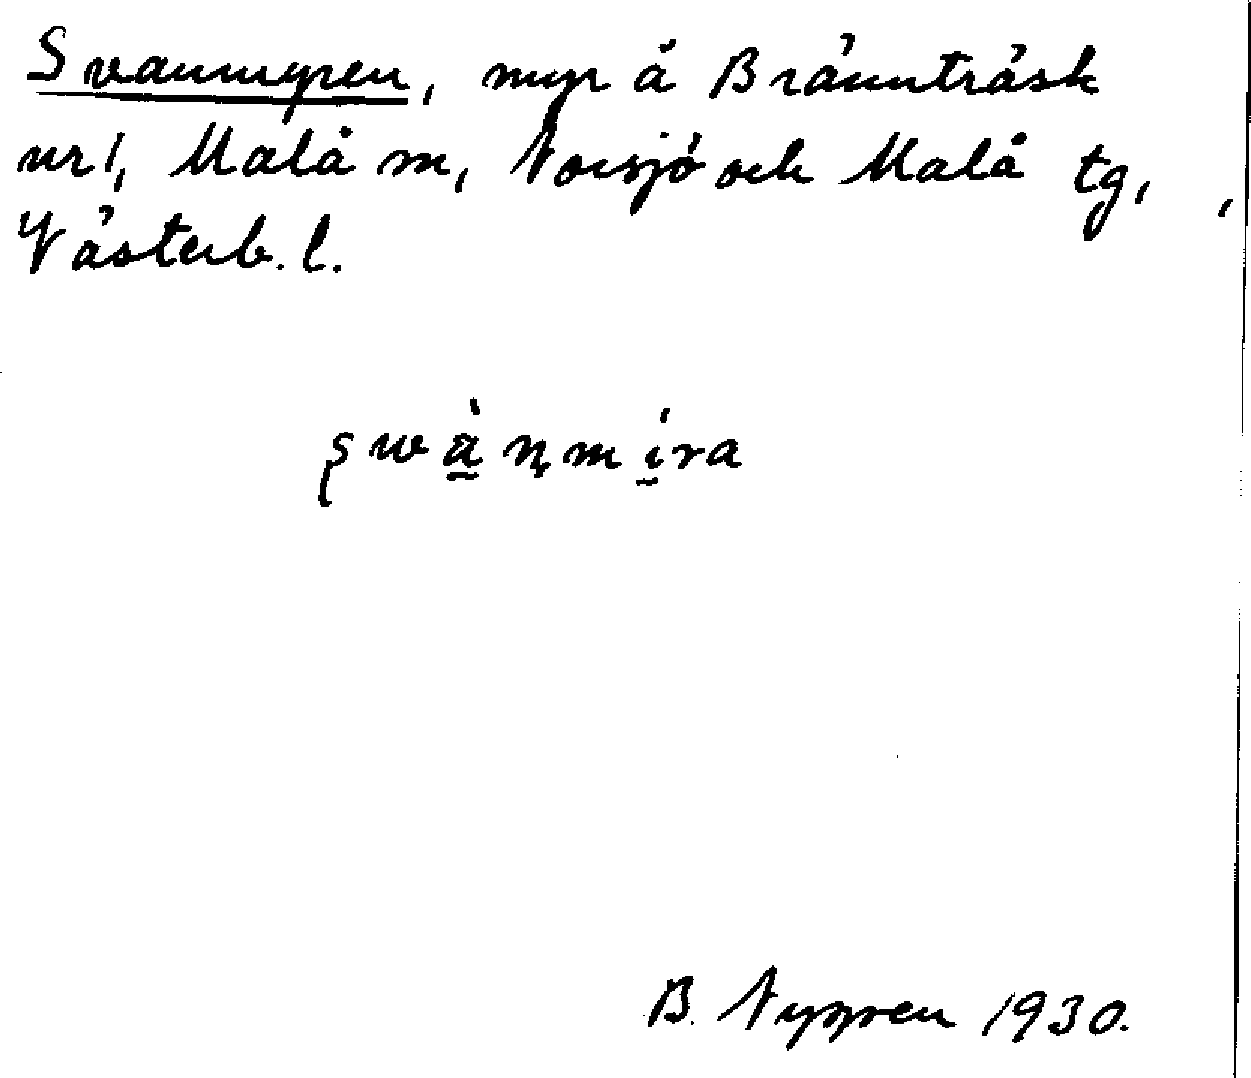 Svanmyren, myr å Brännträsk
nr 1, Malå sn, Norsjö och Malå tg,
Västerb. l.
swà̱nmí̱ra
B. Nygren 1930.